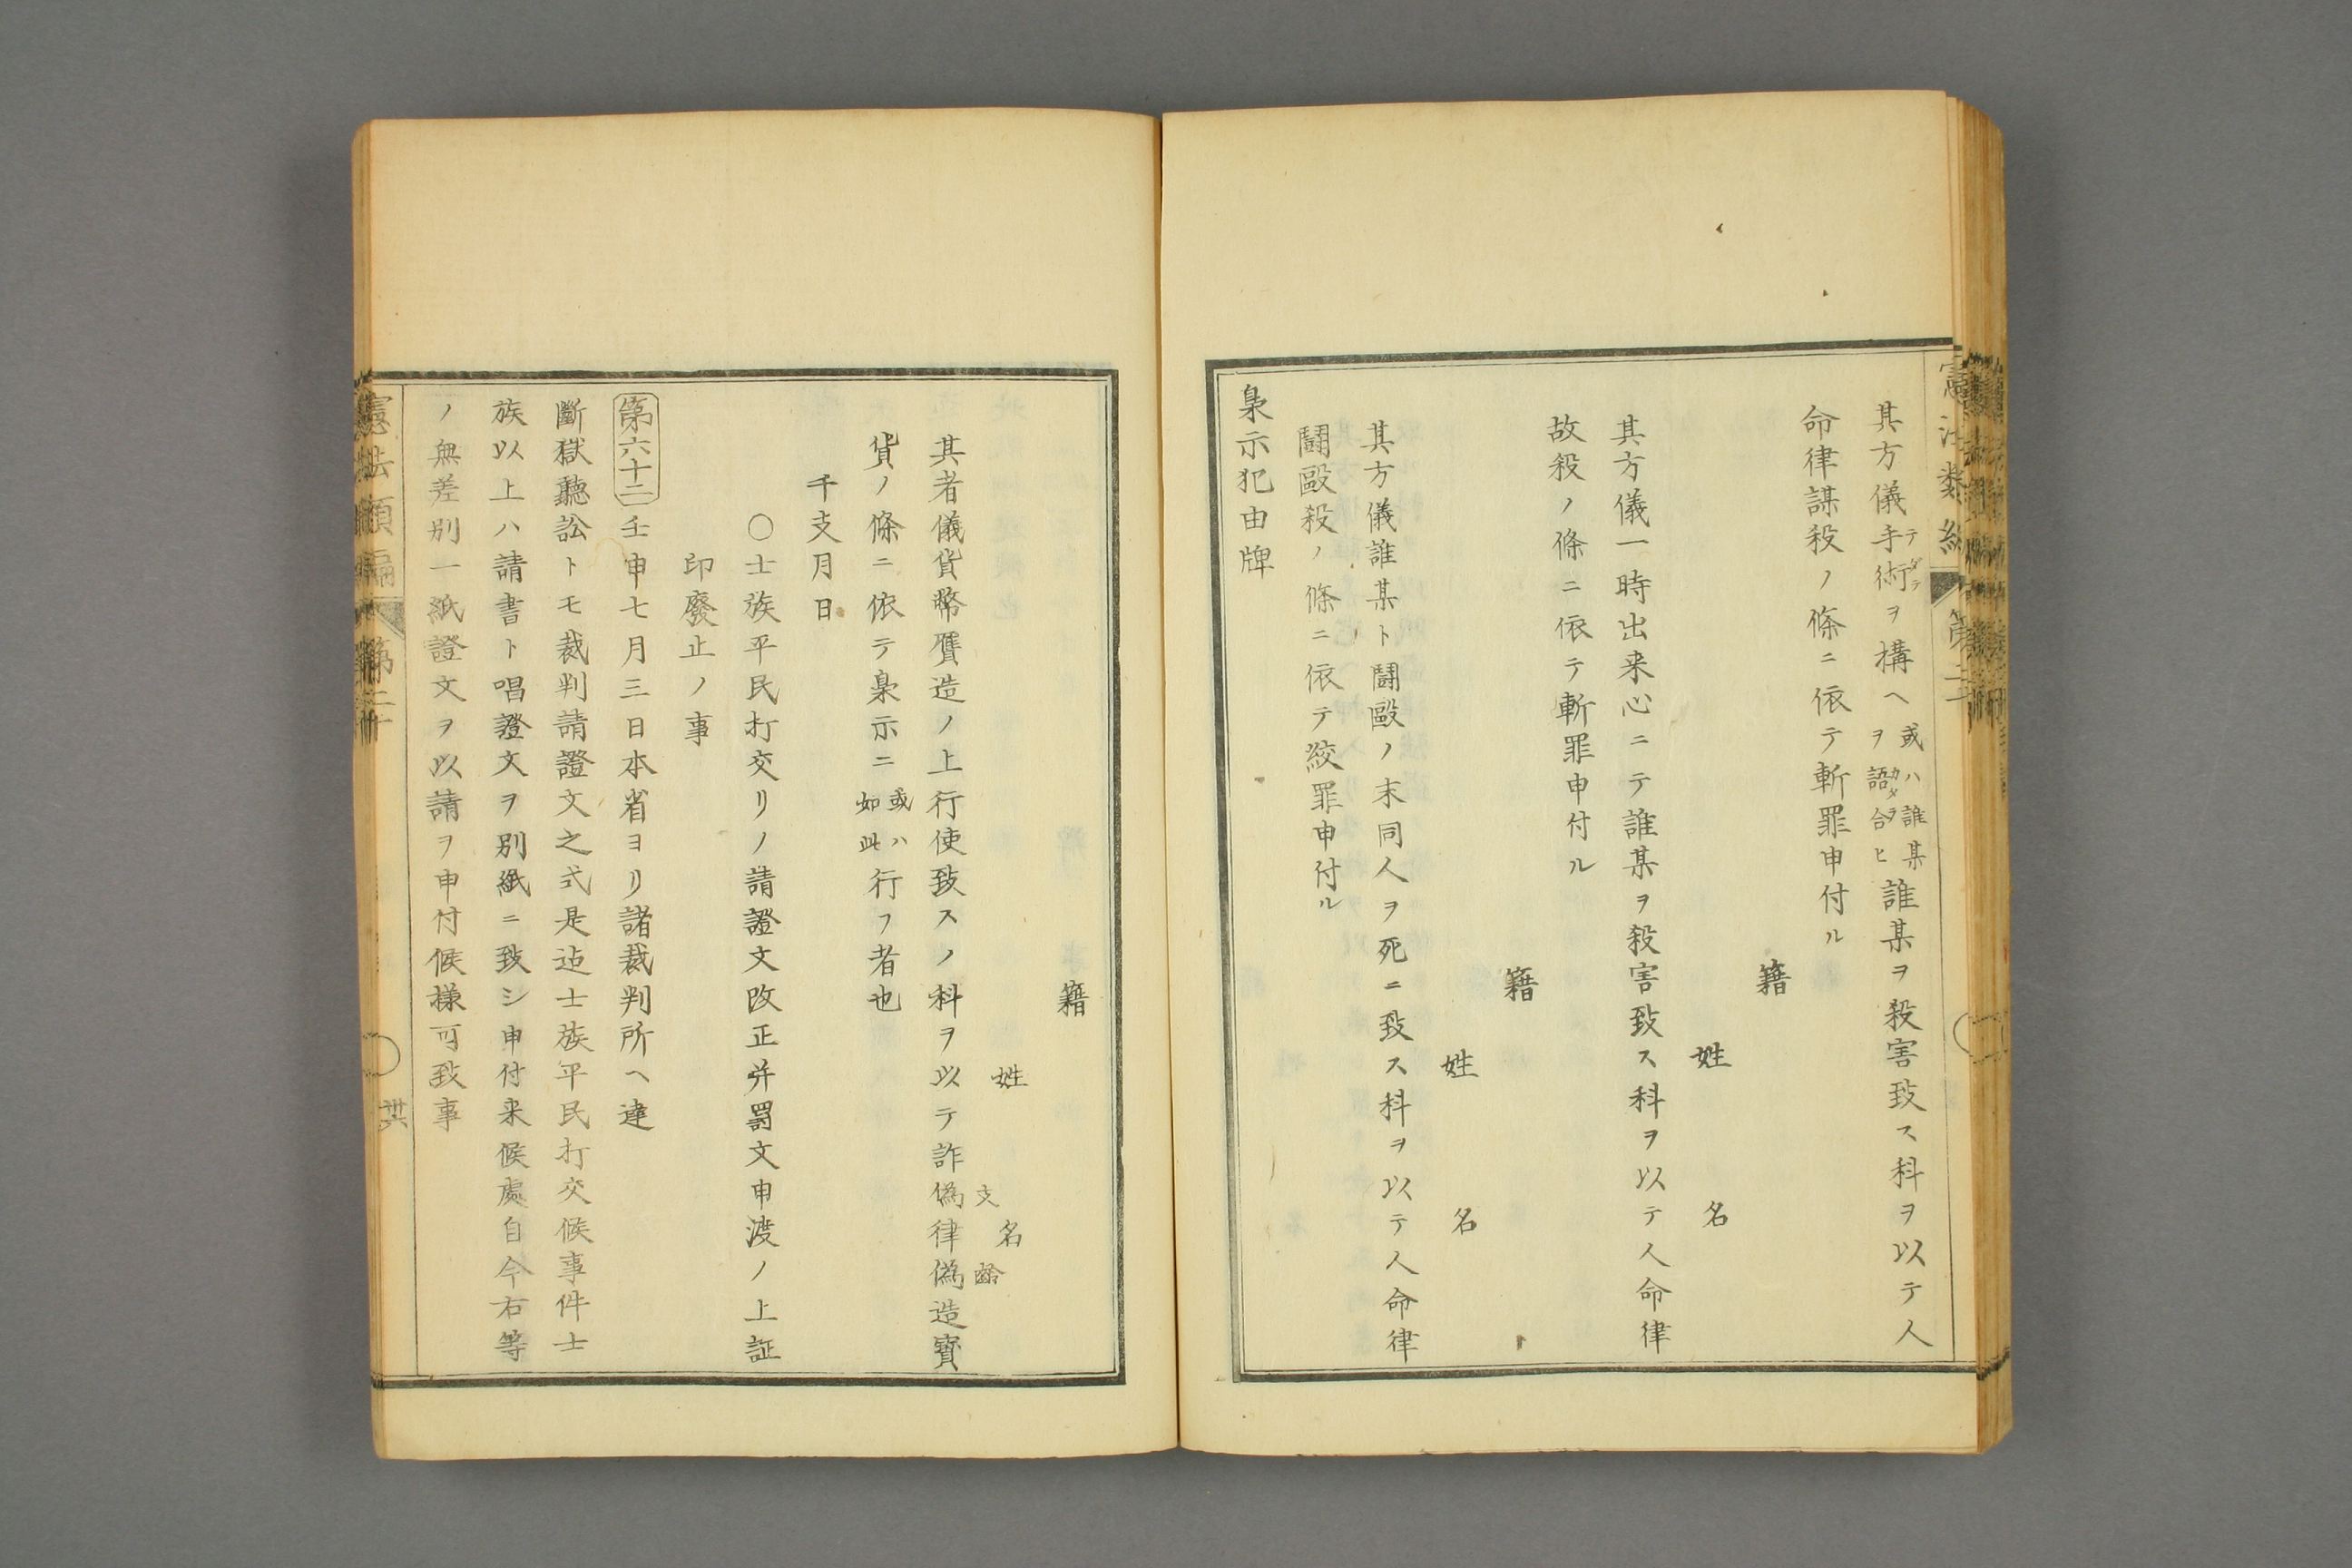 其方儀手術テダテヲ構ヘ或ハ誰某ヲ語カタラ合ヒ誰某ヲ殺害致ス科ヲ以テ人
命律謀殺ノ條ニ依テ斬罪申付ル
籍
姓名
其方儀一時出来心ニテ誰某ヲ殺害致ス科ヲ以テ人命律
故殺ノ條ニ依テ斬罪申付ル
籍
姓名
其方儀誰某ト鬪毆ノ末同人ヲ死ニ致ス科ヲ以テ人命律
鬪毆殺ノ條ニ依テ絞罪申付ル
梟示犯由牌
籍
姓名
支齡
其者儀貨幣贋造ノ上行使致スノ科ヲ以テ詐偽律偽造寳
貨ノ條ニ依テ梟示ニ或ハ如此行フ者也
干支月日
〇士族平民打交リノ請證文改正并罰文申渡ノ上証
印廢止ノ事
第六十二壬申七月三日本省ヨリ諸裁判所ヘ達
斷獄聽訟トモ裁判請證文之式是迠士族平民打交候事件士
族以上ハ請書ト唱證文ヲ別紙ニ致シ申付来候處自今右等
ノ無差别一紙證文ヲ以請ヲ申付候様可致事
憲法類編
第二十